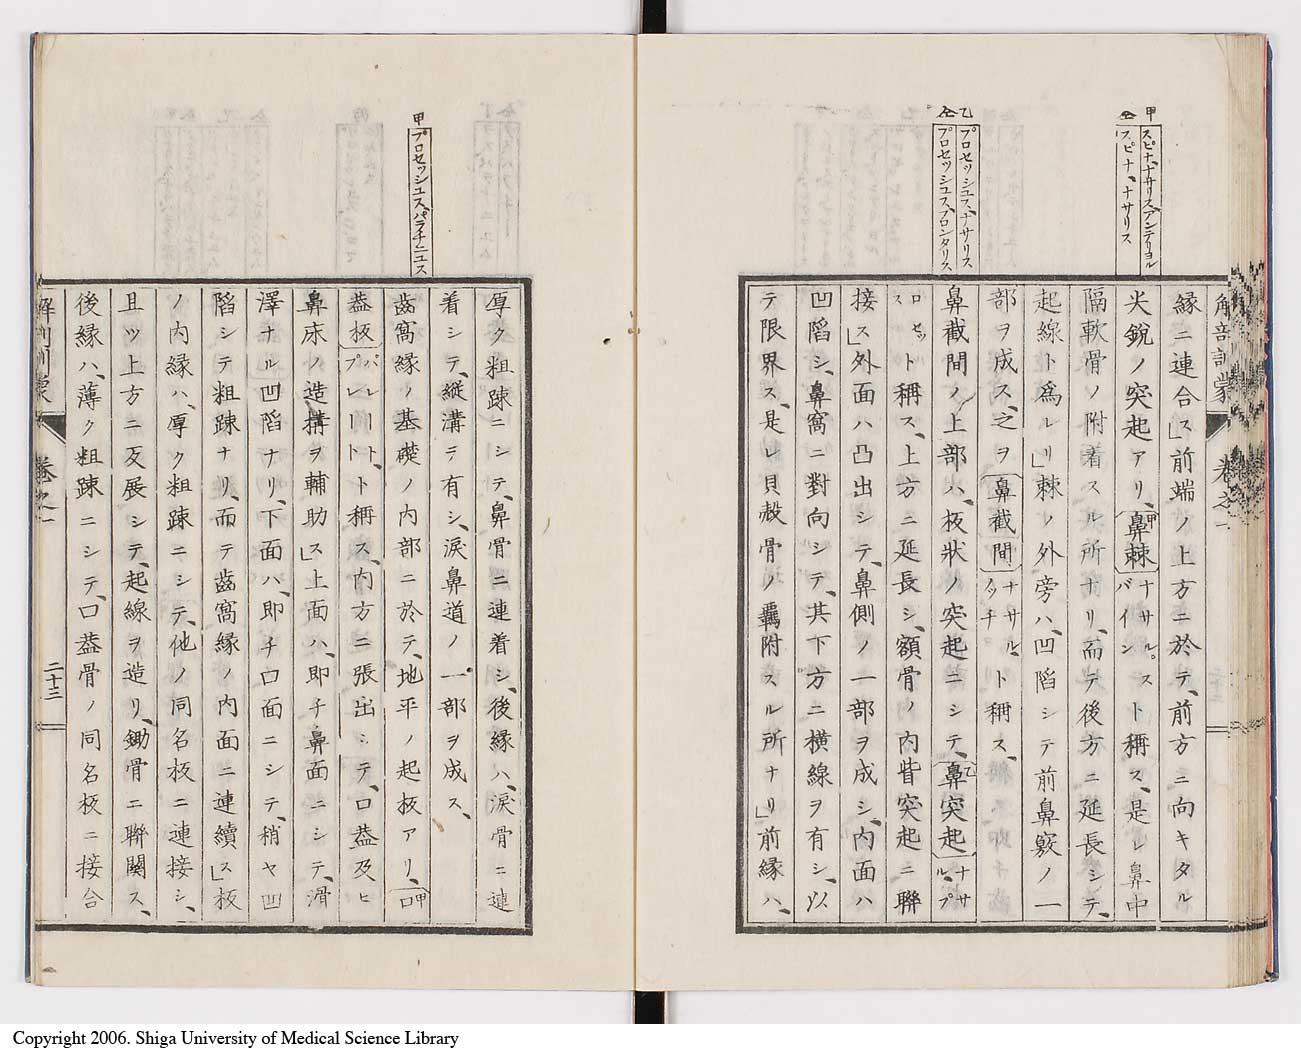 甲
スピナ、ナサリス、アンテリヨル
仝
スピナ、ナサリス
乙
プロセッシュス、ナサリス
仝
プロセッシュス、フロンタリス
解剖訓蒙 卷之一
緣ニ連合ス」前端ノ上方ニ於テ、前方ニ向キタル
尖銳ノ突起アリ、甲鼻棘ナサルスバイント稱ス、是レ鼻中
隔軟骨ノ附着スル所ナリ、而テ後方ニ延長シテ、
起線ト爲ルリ」棘ノ外旁ハ、凹陷シテ前鼻竅ノ一
部ヲ成ス、之ヲ鼻截間ナサルノッチト稱ス、
鼻截間ノ上部ハ、板狀ノ突起ニシテ、乙鼻突起ナサルプ
ロセットスト稱ス、上方ニ延長シ、額骨ノ内眥突起ニ聯
接ス」外面ハ凸出シテ、鼻側ノ一部ヲ成シ、内面ハ
凹陷シ、鼻窩ニ對向シテ、其下方ニ横線ヲ有シ、以
テ限界ス、是レ貝殻骨ノ羈附スル所ナリ」前緣ハ、
甲
プロセッシュス、パラチニュス
厚ク粗踈ニシテ、鼻骨ニ連着シ、後緣ハ、淚骨ニ連
着シテ、縱溝テ有シ、淚鼻道ノ一部ヲ成ス、
齒窩緣ノ基礎ノ内部ニ於テ、地平ノ起板アリ、甲口
葢板パルレートプレートト稱ス、内方ニ張出シテ、口葢及ヒ
鼻床ノ造構ヲ輔助ス」上面ハ、即チ鼻面ニシテ、滑
澤ナル凹陷ナリ、下面ハ、即チ口面ニシテ、稍ヤ凹
陷シテ粗踈ナリ、而テ齒窩緣ノ内面ニ連續ス」板
ノ内緣ハ、厚ク粗踈ニシテ、他ノ同名板ニ連接シ、
且ツ上方ニ反展シテ、起線ヲ造リ、鋤骨ニ聯關ス、
後緣ハ、薄ク粗踈ニシテ、口葢骨ノ同名板ニ接合
解剖訓蒙 卷之一 二十三
Copyright 2006. Shiga University of Medical Science Library